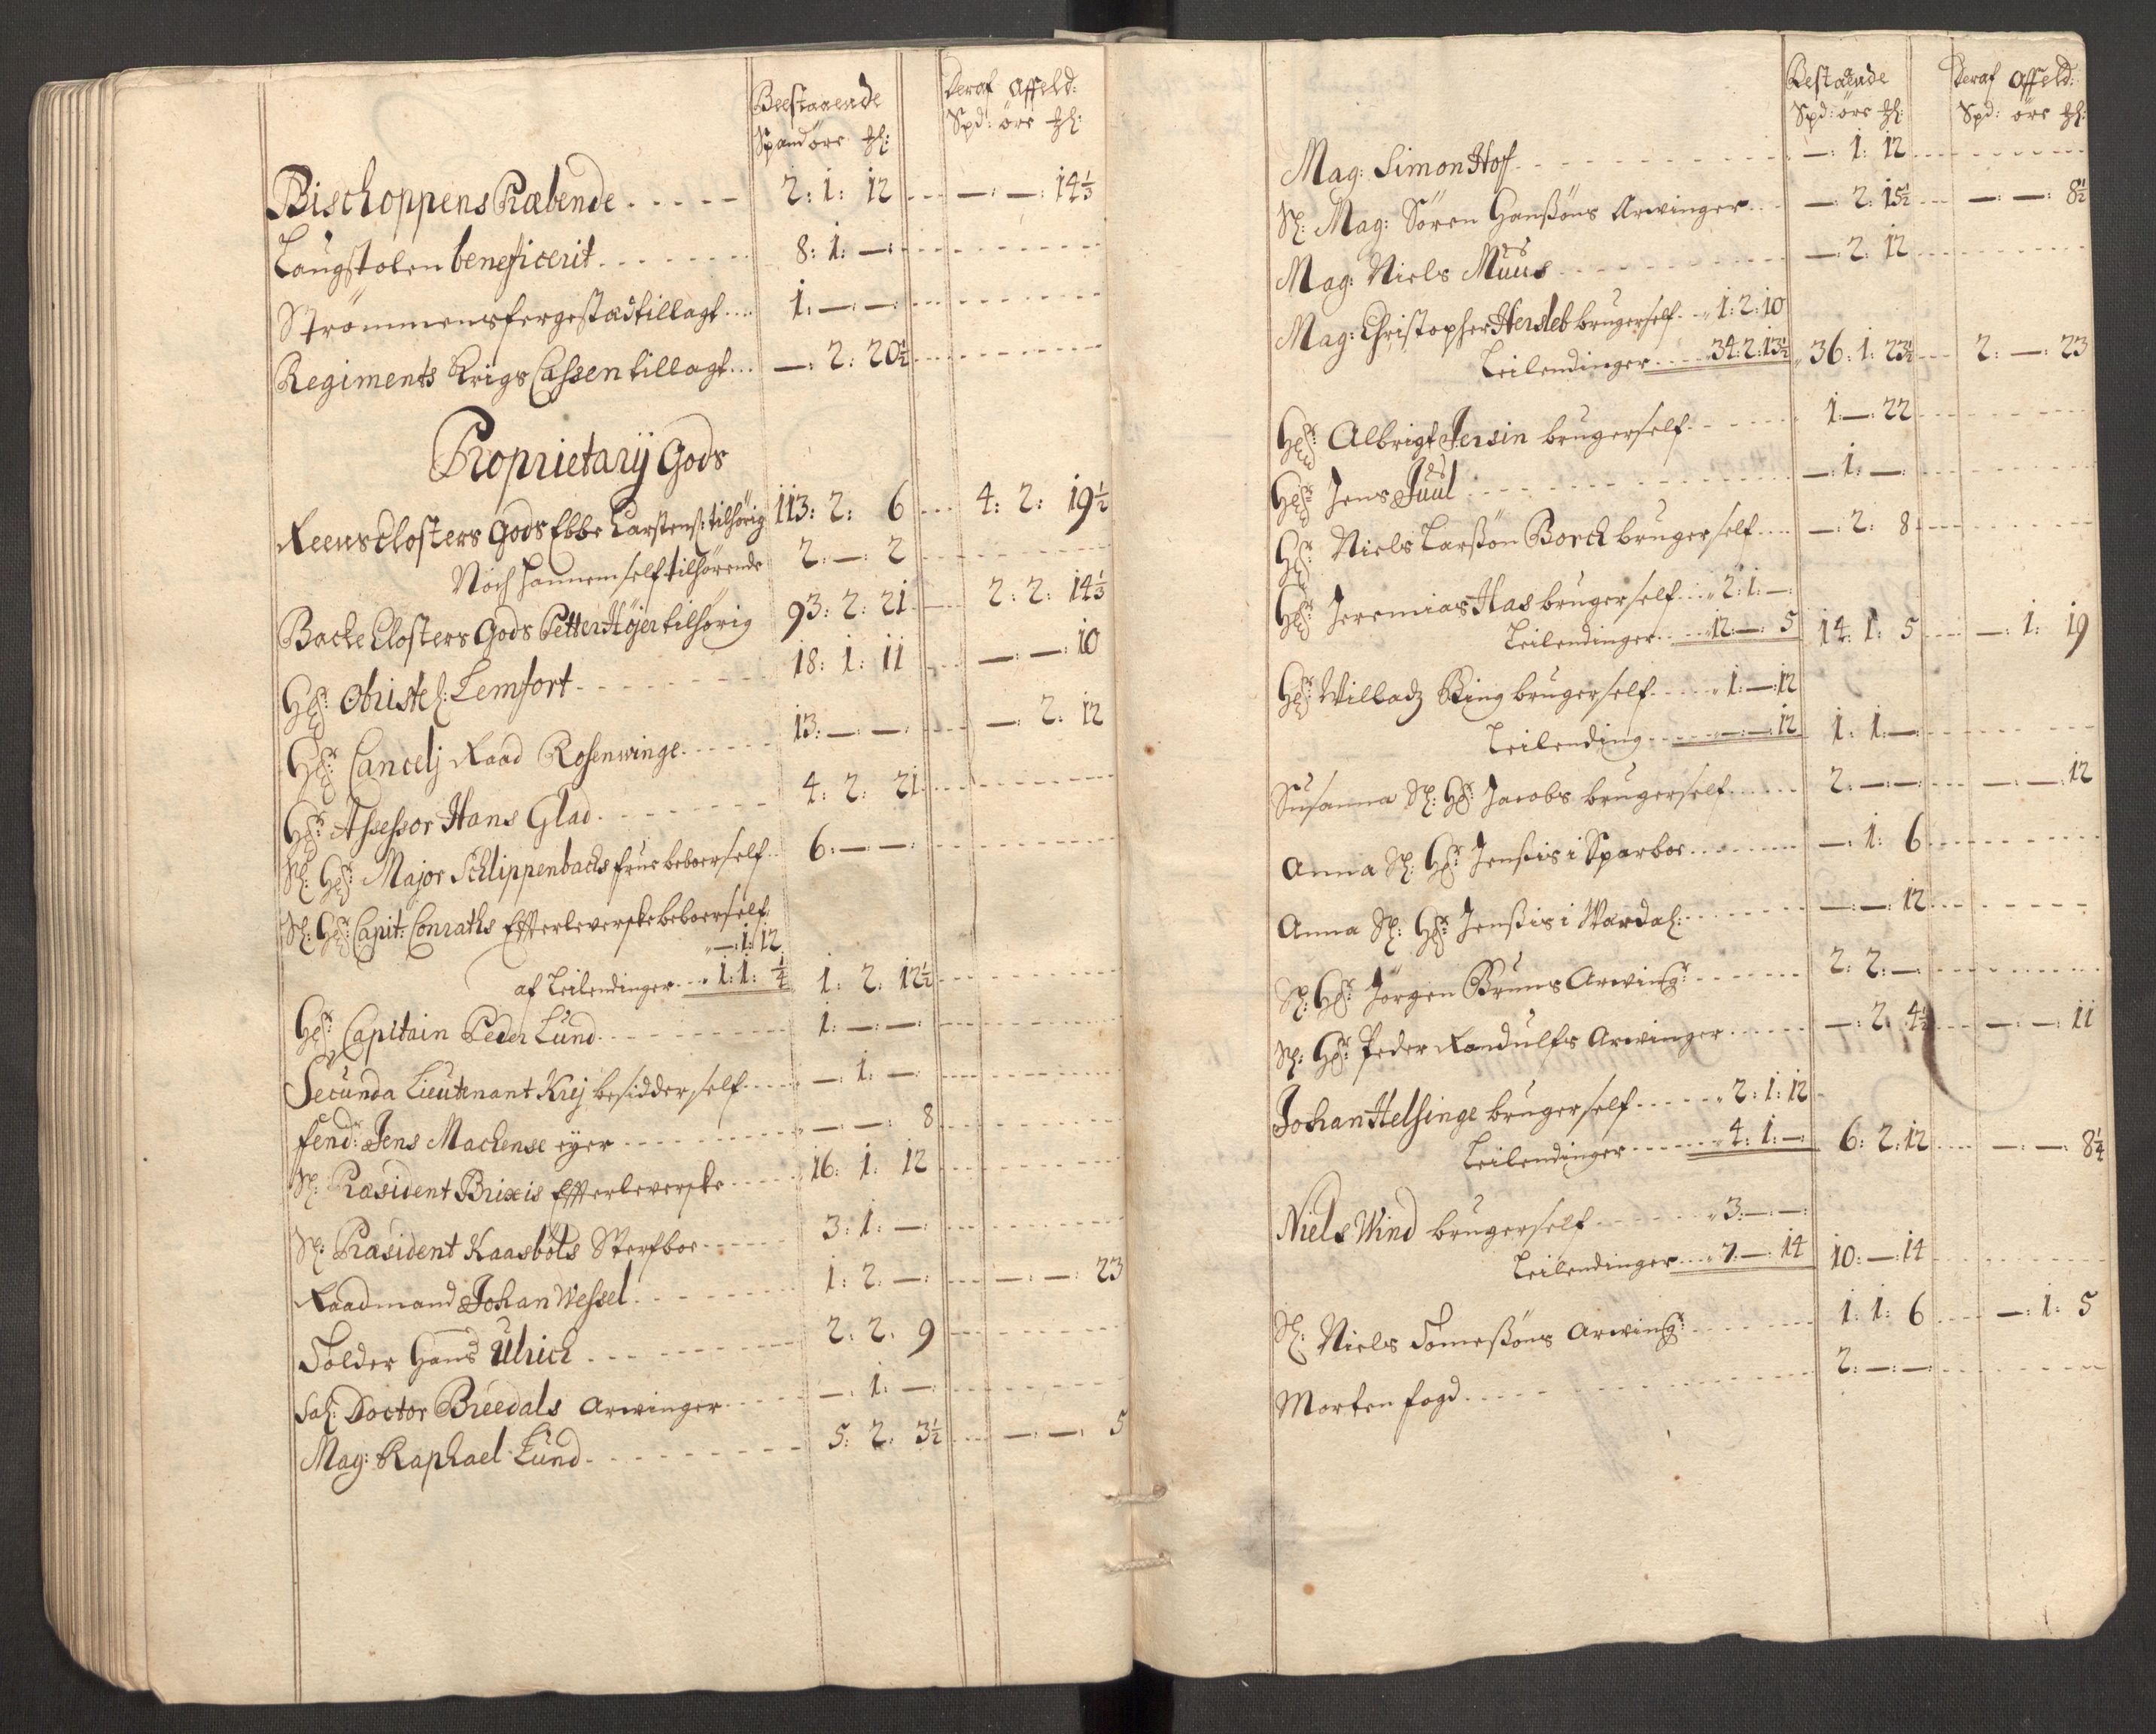 Beestaaende Deraf Affeld:
Spand öre ħl: Spd: öre ħl:
Bischoppens Præbende ..... 2: 1: 12 ... —: —: 14⅓
Laugstolen beneficerit ....... 8: 1: —:
Strömmens fergestæd tillagt .... 1: —: —:
Regiments Krigs Cassen tillagt ... —: 2: 20½
Proprietarij Gods
Reens Closters Gods Ebbe Carstens: tilhörig 113: 2: 6 ... 4: 2: 19½
Noch hannem self tilhörende 2: —: 2
Backe Closters Gods Petter Höjer tilhörig 93: 2: 21 ... 2: 2: 14⅓
Hr: Obriste: Lemfort ......... 18: 1: 11 ... —: —: 10
Hr: Cancelj Raad Rosenwinge ...... 13: —: —: ... —: 2: 12
Hr: Assessor Hans Glad ....... 4: 2: 21
Sl: Hr: Major Schlippenbachs frue beboer self .. 6: —: —:
Sl: Hr: Capit: Conraths Effterleverske beboer self:
—: 1: 12
af Leilendinger ... 1: 1: ¼ 1: 2: 12½
Hr: Capitain Peder Lund ......... 1: —: —:
Secunda Lieutenant Krej besidder self ..... —: 1: —:
fend: Jens Mackense eyer ......... —: —: 8
Sl: Præsident Brixis Effterleverske ..... 16: 1: 12
Sl: Præsident Kaasböls Sterfboe ...... 3: 1: —:
Raadmand Johan Wessel ........ 1: 2: —: ... —: —: 23
Tolder Hans Ulrich ......... 2: 2: 9
Sal: Doctor Breedals Arwinger .... —: 1: —:
Mag: Raphael Lund ......... 5: 2: 3½ ... —: —: 5
Bestaaende Deraf Affeld:
Spd: öre ħl: Spd: öre ħl:
Mag: Simon Hof ............ —: 1: 12
Sl: Mag: Sören Hanßöns Arwinger ... —: 2: 15½ ... —: —: 8½
Mag: Niels Muus ............ —: 2: 12
Mag: Christopher Hersleb bruger self ... 1: 2: 10
Leilendinger ..... 34: 2: 13½ 36: 1: 23½ ... 2: —: 23
Hr: Albrigt Jersin bruger self ...... 1: —: 22
Hr: Jens Juul ............... —: 1: —:
Hr: Niels Larßön Borch bruger self .... —: 2: 8
Hr: Jeremias Has bruger self ... 2: 1: —:
Leilendinger ..... 12: —: 5 14: 1: 5 ... —: 1: 19
Hr: Willadz Ring bruger self ..... 1: —: 12
Leilending ..... —: —: 12 1: 1: —:
Susanna Sl: Hr: Jacobs bruger self ...... 2: —: —: ... —: —: 12
Anna Sl: Hr: Jenßis i Sparboe ........ —: 1: 6
Anna Sl: Hr: Jenßis i Wardal: ........ —: —: 12
Sl: Hr: Jörgen Bruns Arwing: ....... 2: 2: —:
Sl: Hr: Peder Randulfs Arwinger ...... —: 2: 4½ ... —: —: 11
Johan Helsinge bruger self ...... 2: 1: 12
Leilendinger ....... 4: 1: —: 6: 2: 12 ... —: —: 8¼
Niels Wind bruger self ....... 3: —: —:
Leilendinger .... 7: —: 14 10: —: 14
Sl: Niels Tomeßöns Arwing: ....... 1: 1: 6 ... —: 1: 5
Morten fogd ............... 2: —: —: